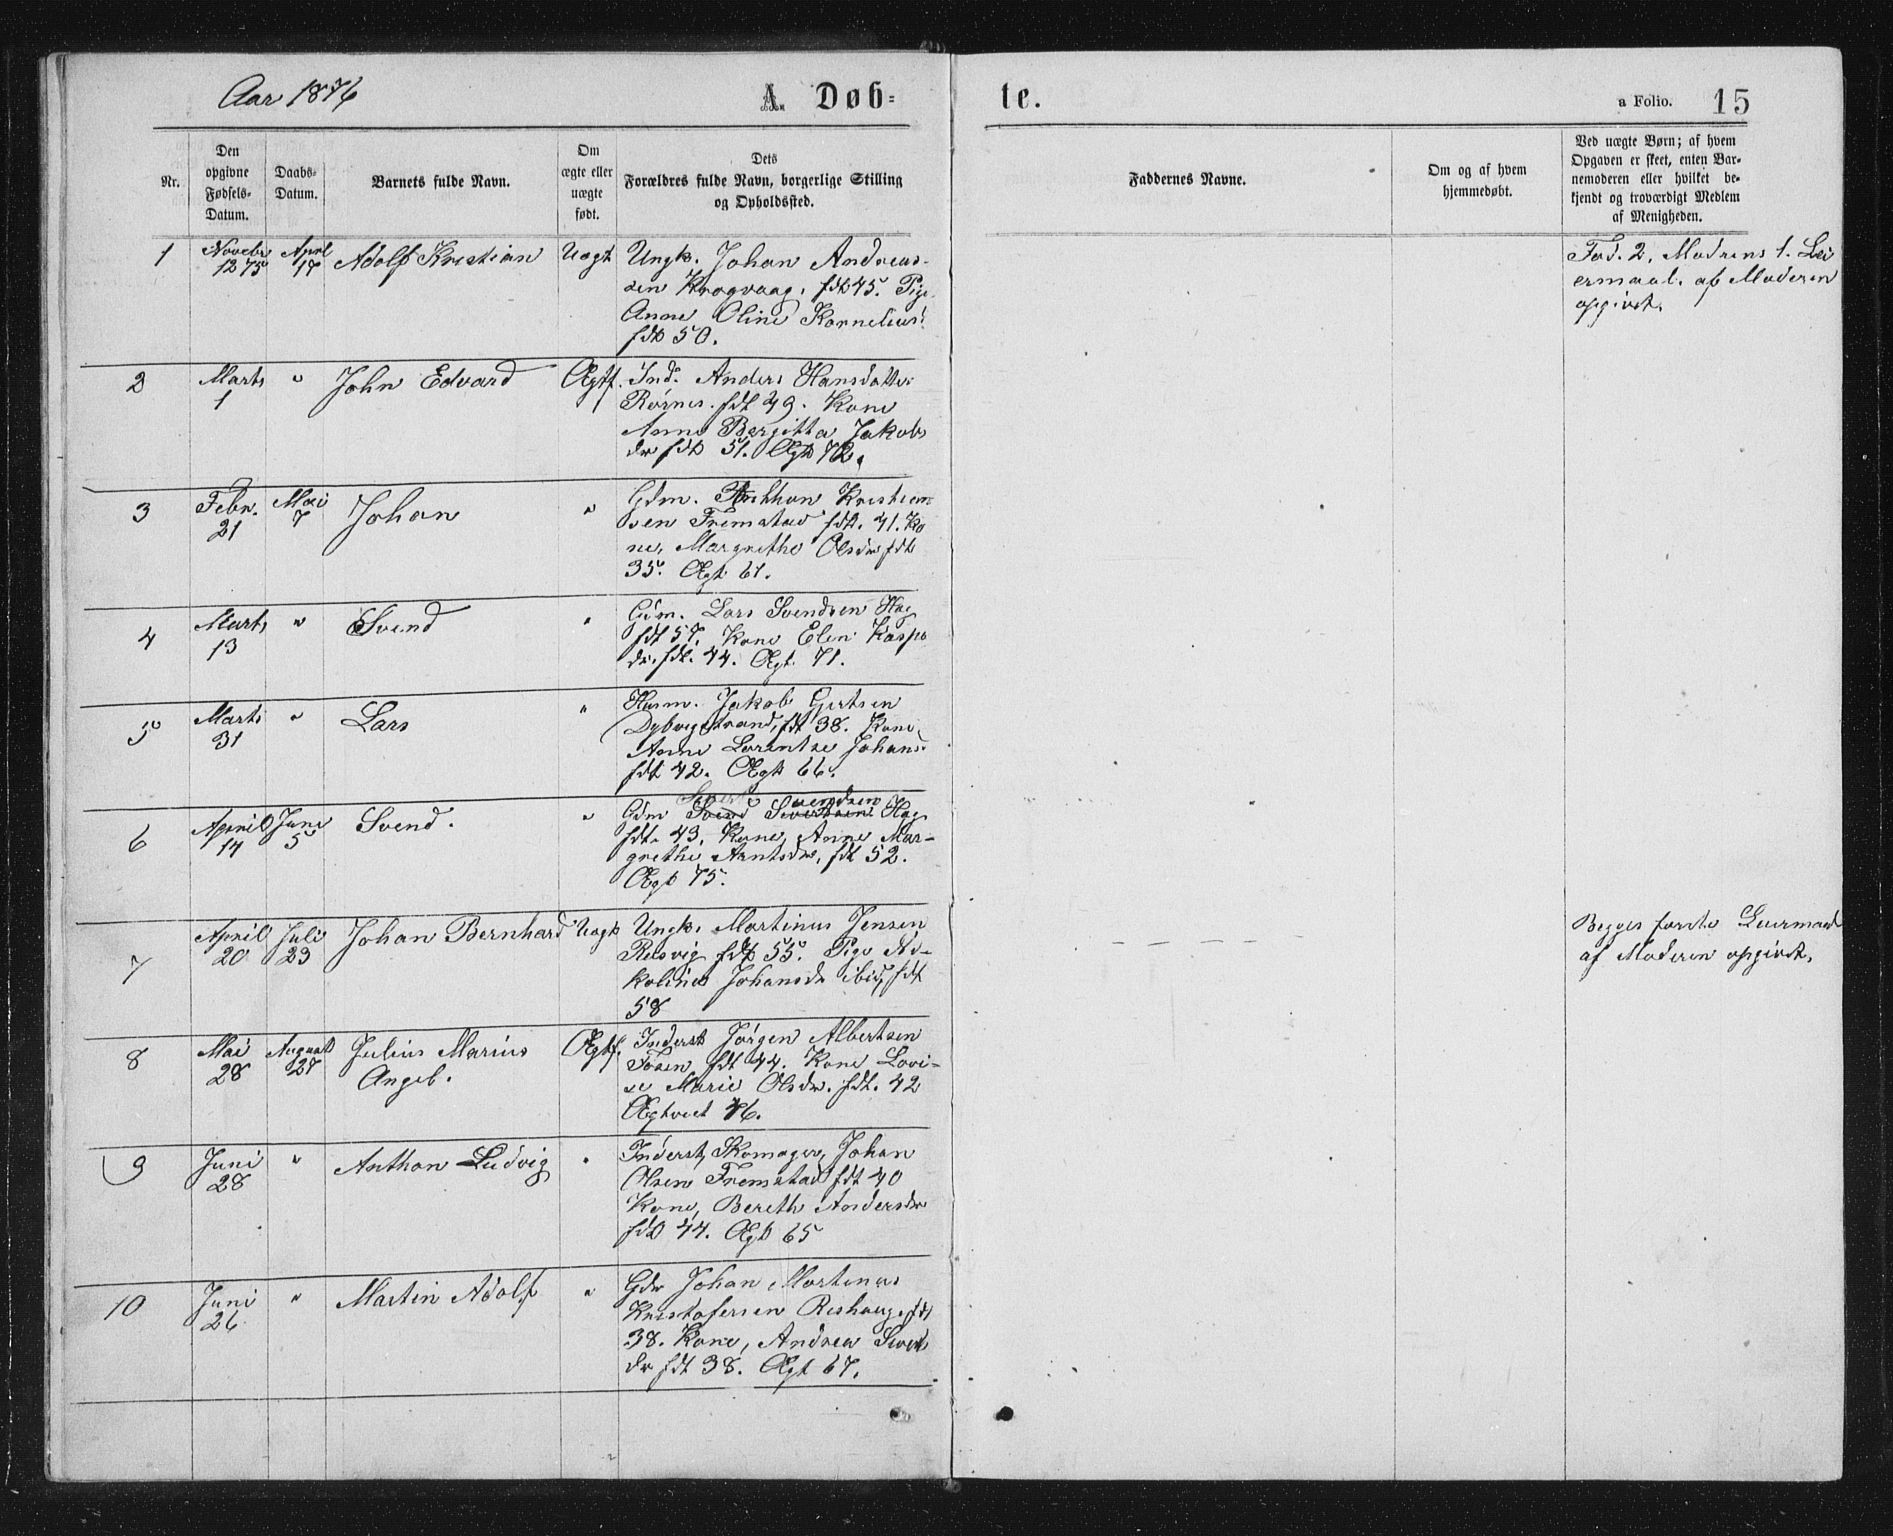 Aar 1876
A. Døb-
te.
a Folio. 15
Nr.
Den
opgivne
Fødsels-
Datum.
Daabs-
Datum.
Barnets fulde Navn.
Om
ægte eller
uægte
født.
Dets
Forældres fulde Navn, borgerlige Stilling
og Opholdssted.
Faddernes Navne.
Om og af hvem
hjemmedøbt.
Ved uægte Børn; af hvem
Opgaven er skeet, enten Bar-
nemoderen eller hvilket be-
kjendt og troværdigt Medlem
af Menigheden.
1
Novebr
12 75
April
17
Adolf Kristian
Uægt
Ungk. Johan Andreas-
sen Krogvaag, fdt 45. Pige
Anne Oline Kornelius:
fdt 50.
Fad. 2, Modrens 1. Lei
ermaal. af Moderen
opgivet.
2
Marts
1
"
John Edvard
Ægtf.
Ind. Anders Hansdatter
Rørnes. fdt 49. Kone
Anne Bergitta Jakobs
dr fdt 51. Ægt 72.
3
Febr.
21
Mai
7
Johan
"
Gdm. Anthon Kristian
sen Fremstad fdt. 41. Ko
ne, Margrethe Olsdr fdt
35. Ægt 61.
4
Marts
13
"
Svend
"
Gdm. Lars Svendsen Hag
fdt 57. Kone Elen Kasps
dr. fdt. 44. Ægt. 71.
5
Marts
31
"
Lars
"
Husm. Jakob Gertsen
Dybvigstrand, fdt 38. Kone
Anne Lorentse Johans:
fdt 42. Ægt 66.
6
April
14
Juni
5
Svend.
"
Sivert vendsen
Gdm Svend Sivertsen Hag
fdt. 43, Kone, Anne Mar-
grethe Arntsdr, fdt 52.
Ægt 75.
7
April
20
Juli
23
Johan Bernhard
Uægt
Ungk. Martinus Jensen
Relsvig fdt 55. Pige Ni-
koline Johansdr ibid, fdt
58
Begges første Leiermaal
af Moderen opgivet.
8
Mai
28
August
27
Julius Marius
Angel.
Ægtf.
Inderst Jørgen Albertsen
Fosen, fdt 44. Kone Lovi-
se Marie Olsdr. fdt. 42
Ægtviet 76.
9
Juni
28
"
Anthon Ludvig
"
Inderst, Skomager, Johan
Olsen Fremstad fdt 40
Kone, Bereth Andersdr
fdt 44. Ægt 65
10
Juni
26
"
Martin Adolf
"
Gdr Johan Martinus
Kristofersen Reshaug, fdt
38. Kone, Andrea Siverts
dr fdt 38. Ægt 67.